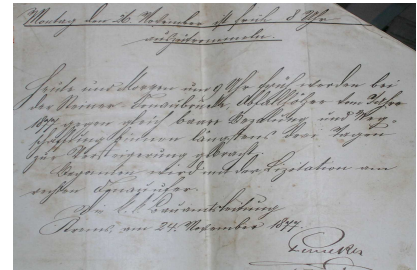 Montag den 26. November ist früh 8 Uhr
auszutrommeln.
Heute und Morgen um 9 Uhr früh werden bei
der Steiner Donaubrücke, Abfallhölzer vom Jahre
1877 gegen gleich baare Bezahlung und Weg-
schaffung binnen längstens drei Tagen
zur Versteigerung gebracht.
Begonnen wird mit der Lizitation am
rechten Donauufer.
Die k. k. Bauamtsleitung
Krems am 24. November 1877.